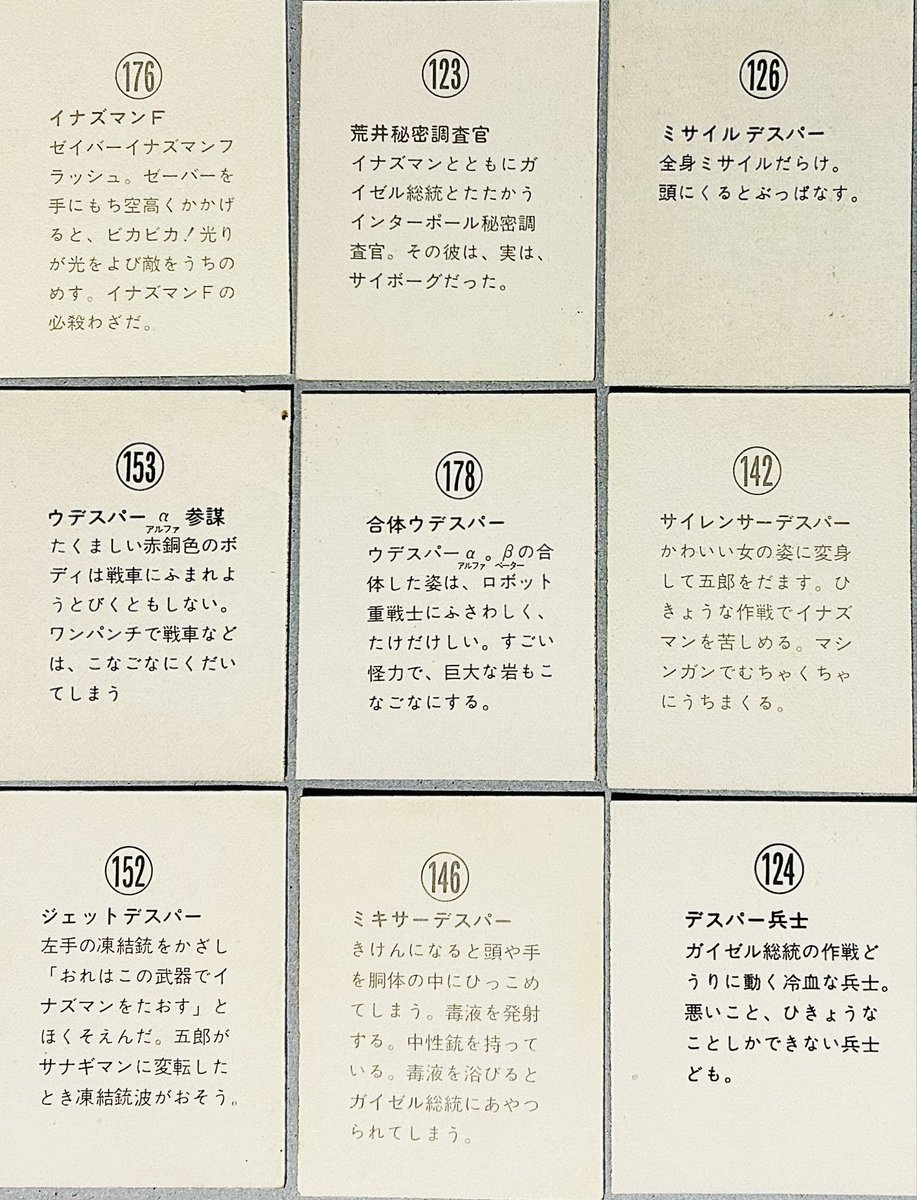 176
イナズマンF
ゼイバーイナズマンフ
ラッシュ。ゼーバーを
手にもち空高くかかげ
ると、ビカビカ!光り
が光をよび敵をうちの
めす。イナズマンFの
必殺わざだ。
123
荒井秘密調査官
イナズマンとともにガ
イゼル総統とたたかう
インターポール秘密調
査官。その彼は、実は、
サイボーグだった。
126
ミサイルデスパー
全身ミサイルだらけ。
頭にくるとぶっぱなす。
153
ウデスパー α 参謀
アルファ
たくましい赤銅色のボ
ディは戦車にふまれよ
うとびくともしない。
ワンパンチで戦車など
は、こなごなにくだい
てしまう
178
合体ウデスパー
ウデスパー α 。βの合
アルファ ベーター
体した姿は、ロボット
重戦士にふさわしく、
たけだけしい。すごい
怪力で、巨大な岩もこ
なごなにする。
142
サイレンサーデスパー
かわいい女の姿に変身
して五郎をだます。ひ
きょうな作戦でイナズ
マンを苦しめる。マシ
ンガンでむちゃくちゃ
にうちまくる。
152
ジェットデスパー
左手の凍結銃をかざし
「おれはこの武器でイ
ナズマンをたおす」と
ほくそえんだ。五郎が
サナギマンに変転した
とき凍結銃波がおそう。
146
ミキサーデスパー
きけんになると頭や手
を胴体の中にひっこめ
てしまう。毒液を発射
する。中性銃を持って
いる。毒液を浴びると
ガイゼル総統にあやつ
られてしまう。
124
デスパー兵士
ガイゼル総統の作戦ど
うりに動く冷血な兵士。
悪いこと、ひきょうな
ことしかできない兵士
ども。